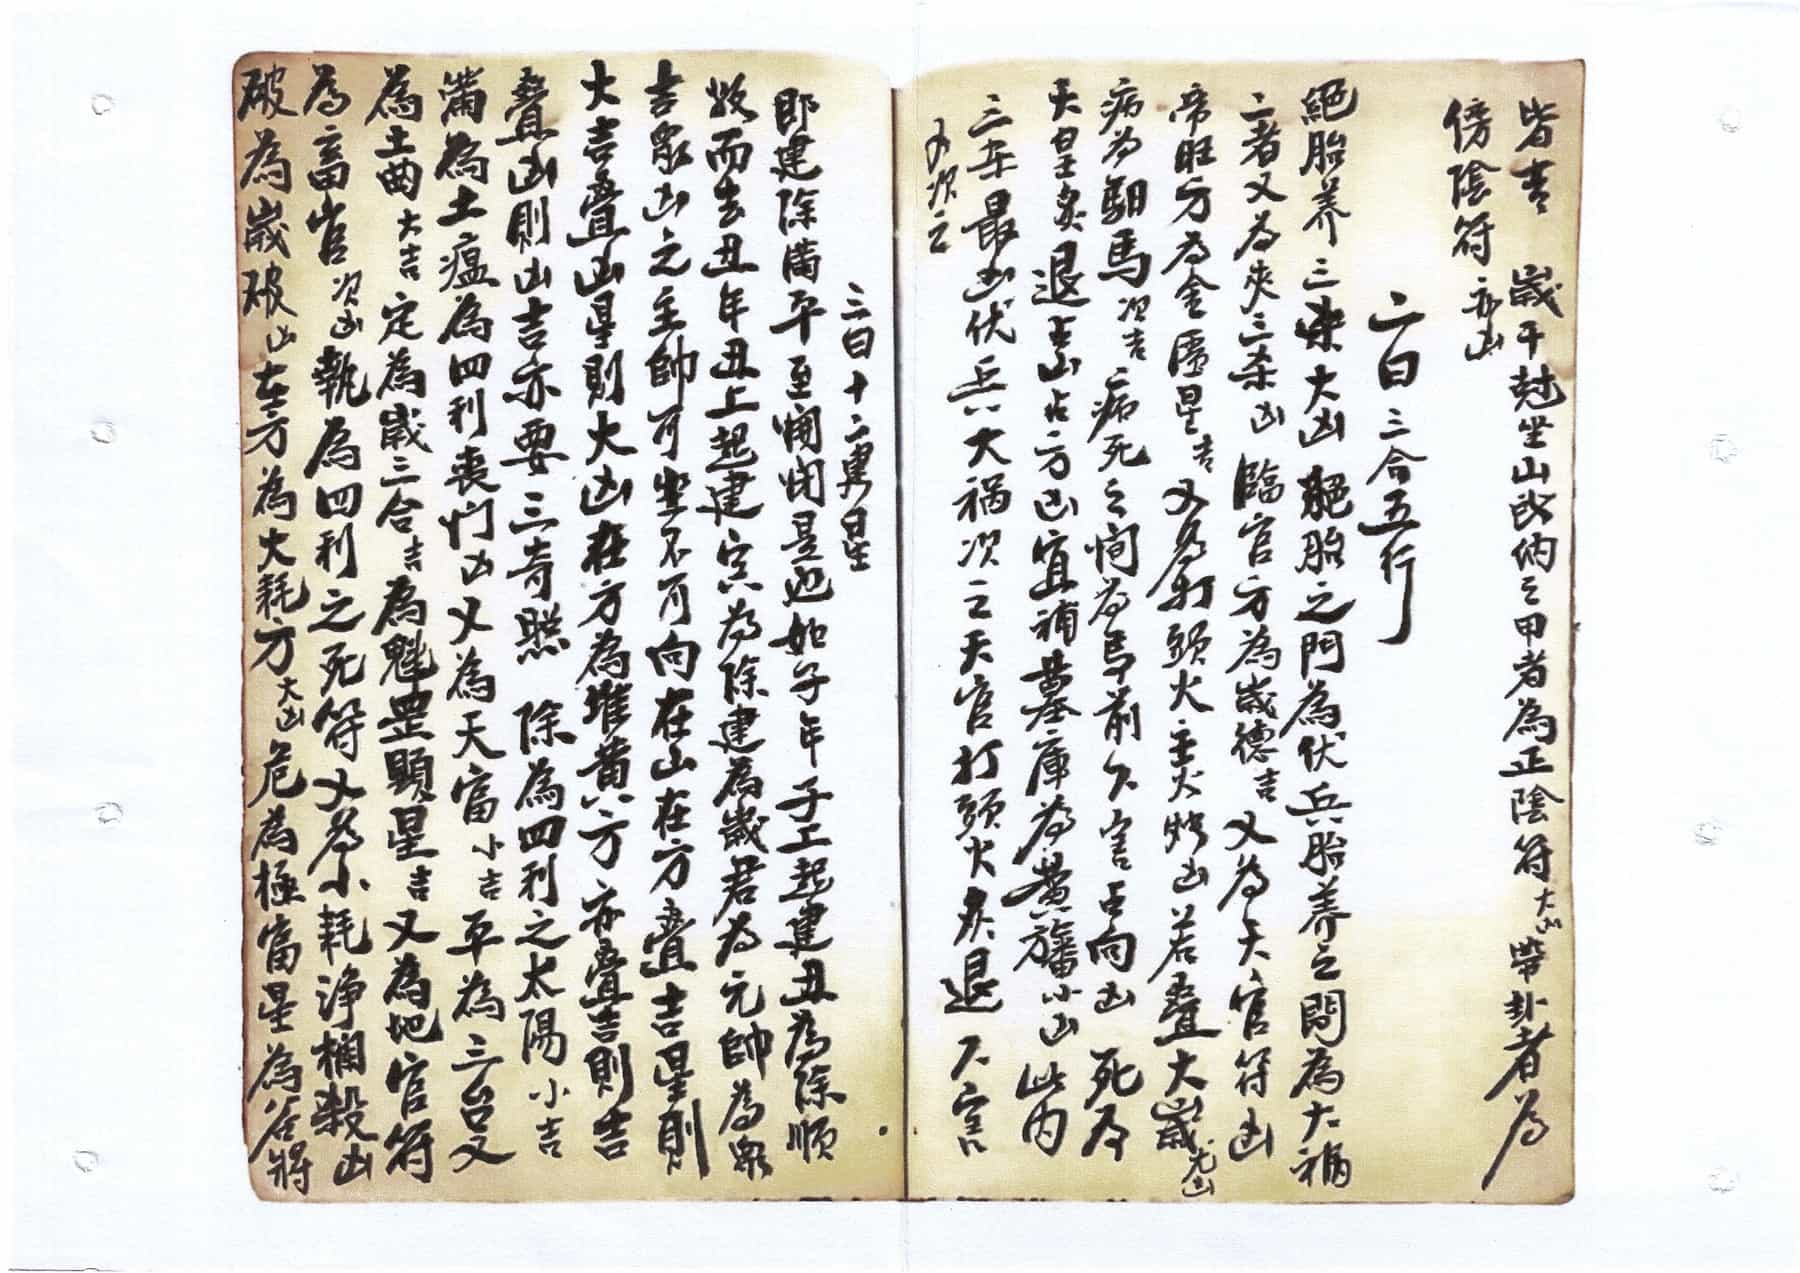 皆吉 歲干尅坐山改納之甲者為正陰符大凶 帶卦者為
傍陰符亦凶
二曰三合五行
絕胎養三柒大凶 絕胎之門為伏兵胎養之間為大禍
二者又為夾三柒凶 臨官方為歲德吉又為天官符凶
帝旺方為金匱星吉又為打頭火主火燒山若叠大歲尤凶
病為馹馬次吉病死之间為馬前六害占向凶 死為
天皇炙退主山占方凶宜補墓庫為黃旛小凶 此内
三柒最凶伏兵大禍次之天官打頭火炙退六害
又次之
三曰十二男星
即建除滿平至開闭是也如子年子上起建丑為除順
数而去丑年丑上起建寅為除建為歲君為元帥為眾
吉眾凶之主帥可坐不可向在山在方叠吉星則
大吉叠凶星則大凶在方為堆黄六方亦叠吉則吉
叠凶則凶吉亦要三奇照 除為四利之太陽小吉
滿為土瘟為四利喪门凶又為天富小吉 平為三台又
為土曲大吉 定為歲三合吉為魁罡顯星吉又為地官符
為畜官次凶執為四利之死符又為小耗净欄殺凶
破為歲破凶在方為大耗方大凶 危為極富星為谷將